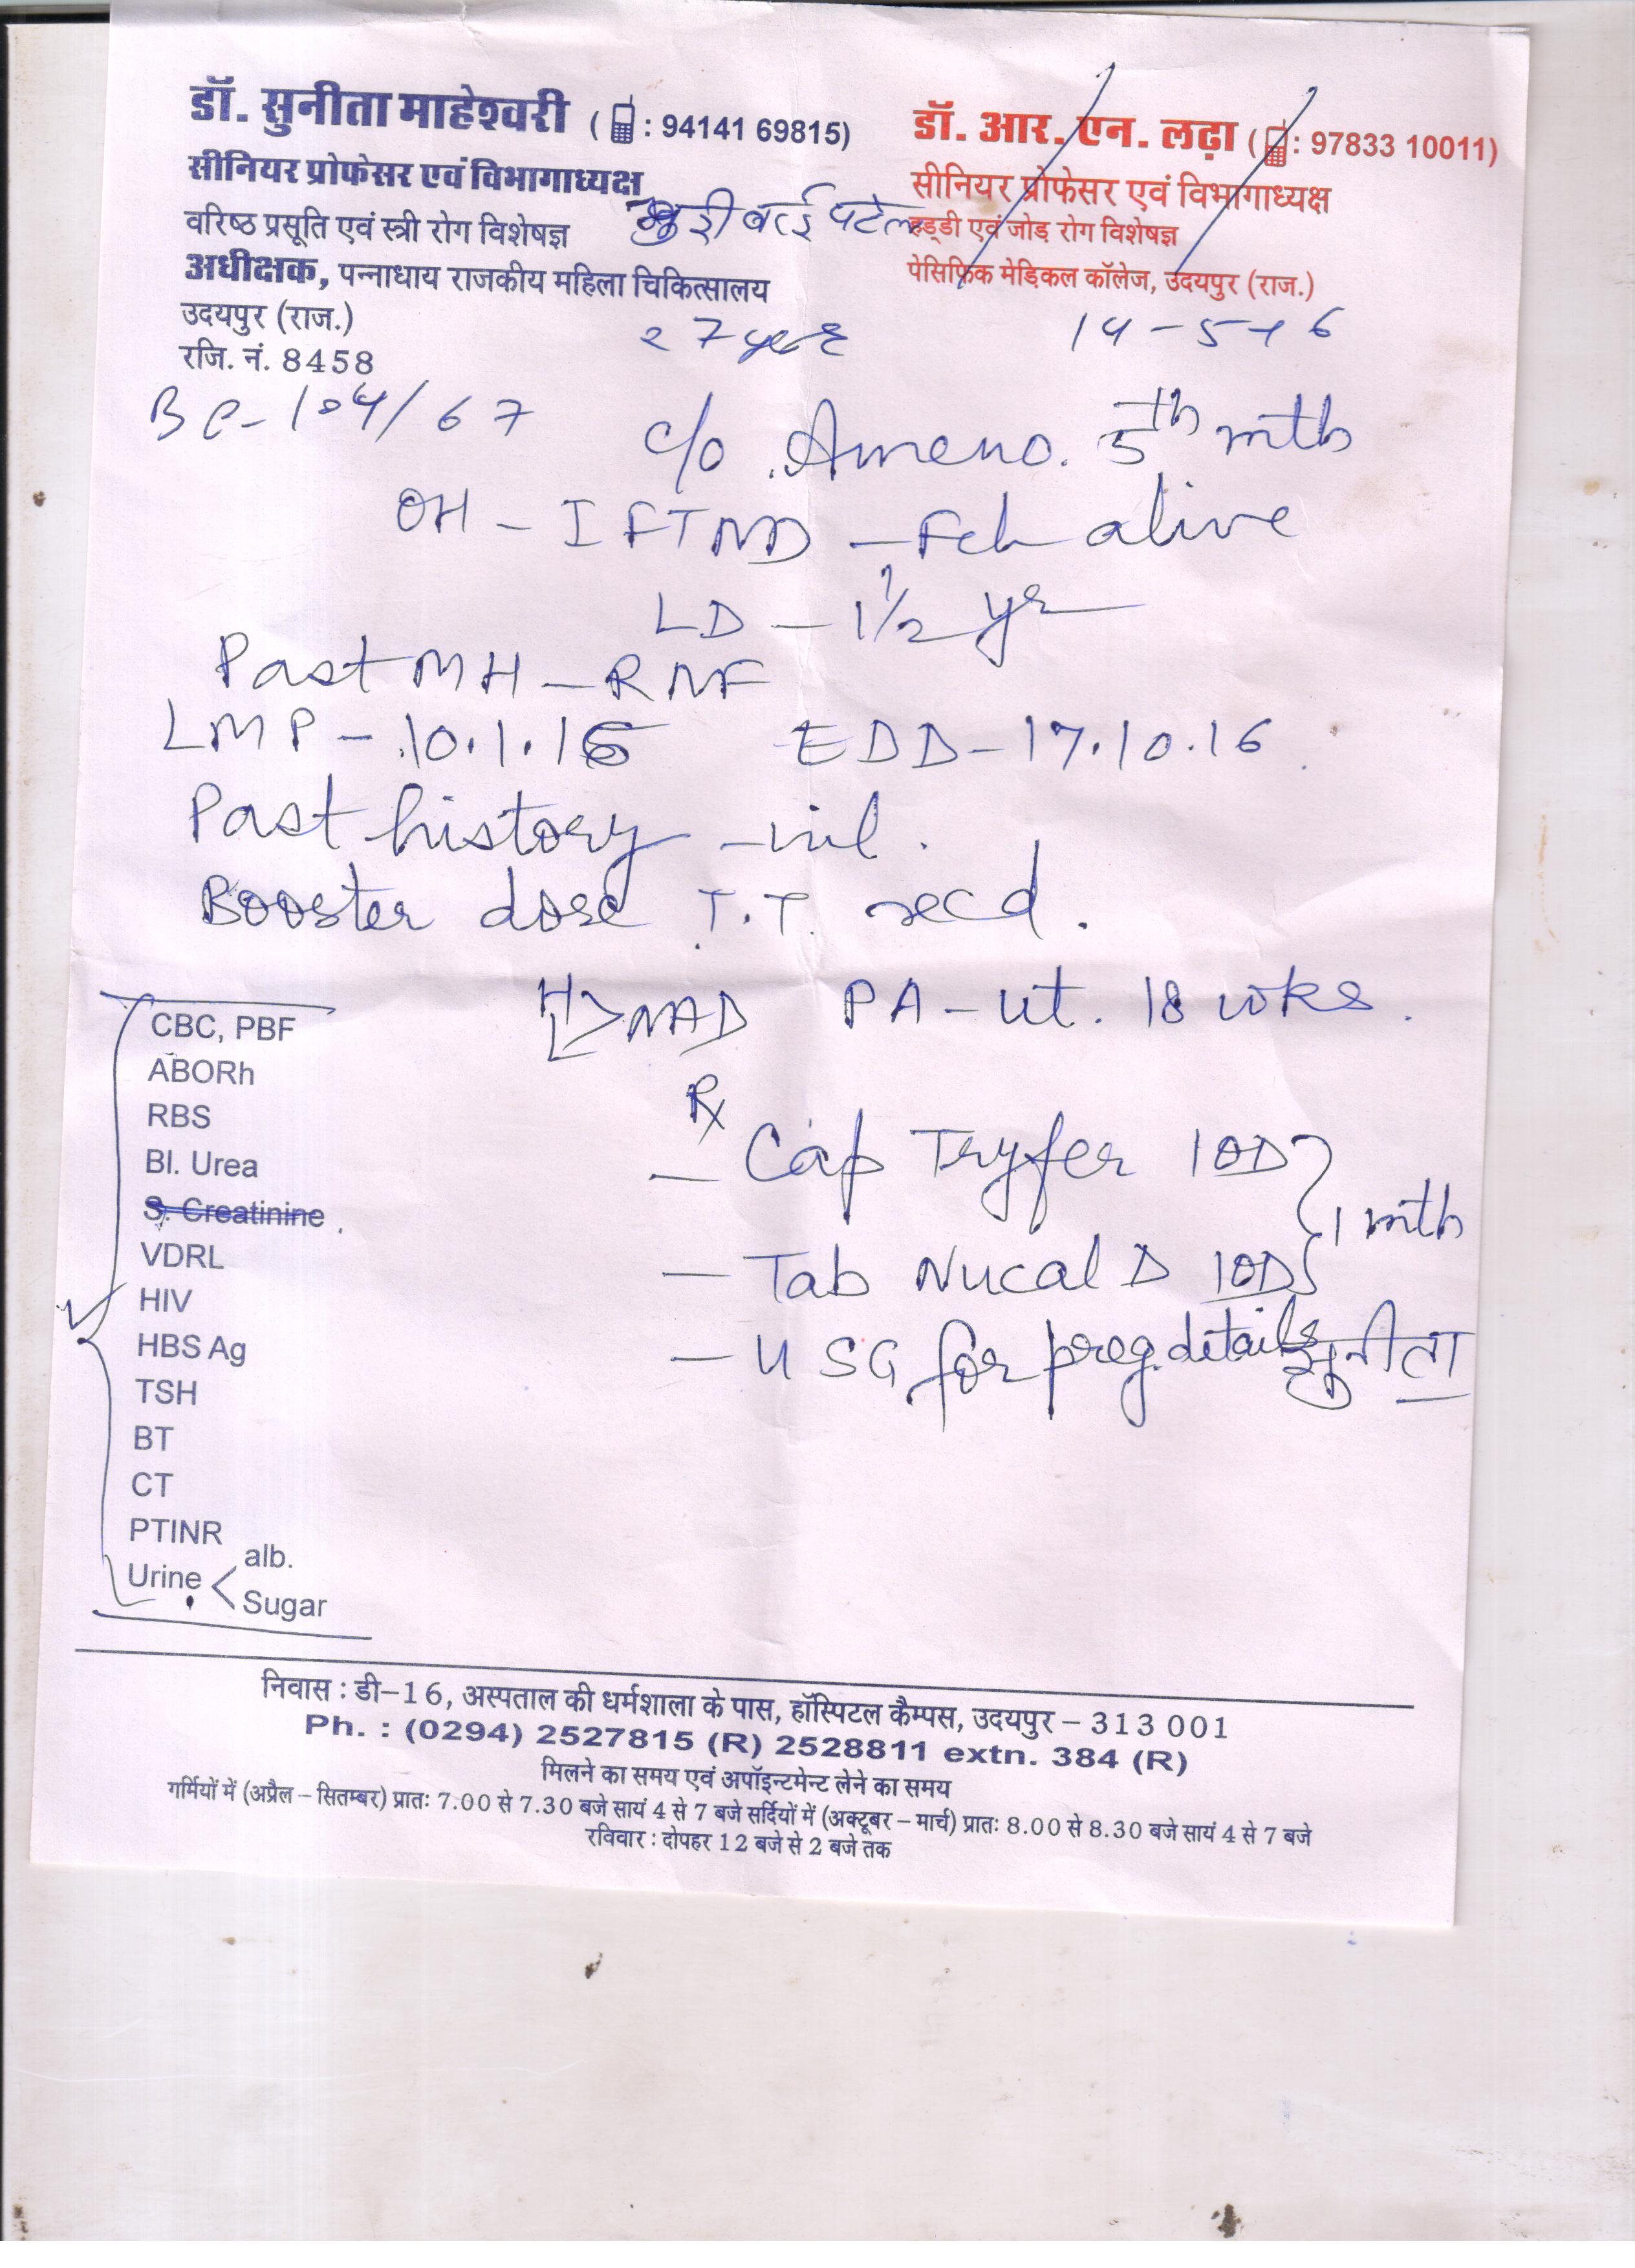 डॉ. सुनीता माहेश्वरी ( : 94141 69815)
सीनियर प्रोफेसर एवं विभागाध्यक्ष
वरिष्ठ प्रसूति एवं स्त्री रोग विशेषज्ञ
अधीक्षक, पन्नाधाय राजकीय महिला चिकित्सालय
उदयपुर (राज.)
रजि. नं. 8458
डॉ. आर. एन. लढ़ा ( : 97833 10011)
सीनियर प्रोफेसर एवं विभागाध्यक्ष
हड्डी एवं जोड़ रोग विशेषज्ञ
पेसिफिक मेडिकल कॉलेज, उदयपुर (राज.)
बाई पटेल
27 14-5-16
BP-104/67
c/o Ameno. 5th mth
OH - I FTND - Fch alive
LD - 1 1/2 yr
Past MH - RNF
LMP - 10.1.16 EDD - 17.10.16
Past history - nil.
Booster dose T.T. recd.
H L > NAD PA - ut. 18 wks.
Rx
- Cap Tryfer 1 OD
1 mth
- Tab Nucal D 1 OD
- USG for preg. details
सुनीता
CBC, PBF
ABORh
RBS
Bl. Urea
S. Creatinine
VDRL
HIV
HBS Ag
TSH
BT
CT
PTINR
Urine < alb.
Sugar
निवास : डी-16, अस्पताल की धर्मशाला के पास, हॉस्पिटल कैम्पस, उदयपुर – 313 001
Ph. : (0294) 2527815 (R) 2528811 extn. 384 (R)
मिलने का समय एवं अपॉइन्टमेन्ट लेने का समय
गर्मियों में (अप्रैल – सितम्बर) प्रातः 7.00 से 7.30 बजे सायं 4 से 7 बजे सर्दियों में (अक्टूबर – मार्च) प्रातः 8.00 से 8.30 बजे सायं 4 से 7 बजे
रविवार : दोपहर 12 बजे से 2 बजे तक